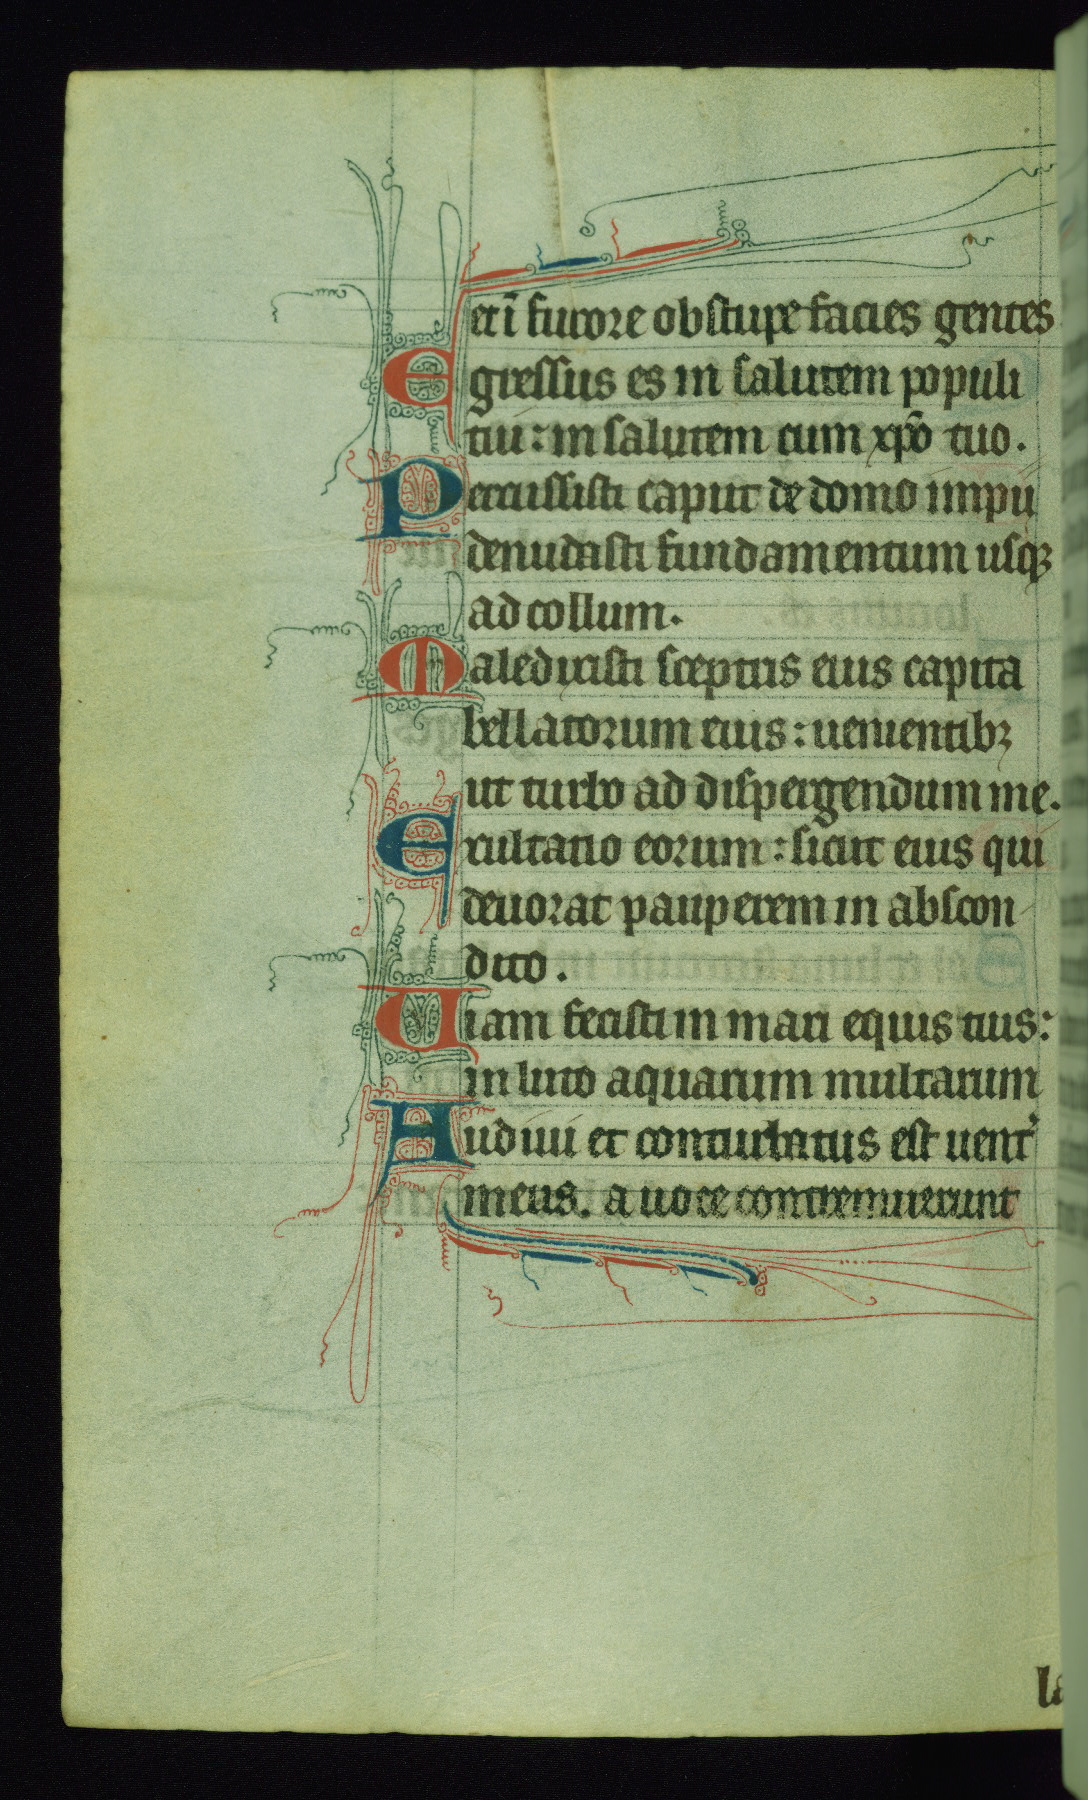 et ī furore obstupe facies gentes
Egressus es in salutem populi
tui: in salutem cum xp̄o tuo.
Percussisti caput de domo impii
denudasti fundamentum usqꝫ
ad collum.
Maledixisti sceptris eius capita
bellatorum eius: uenientibꝫ
ut turbo ad dispergendum me.
Exultatio eorum: sicut eius qui
deuorat pauperem in abscon
dito.
Uiam fecisti in mari equis tuis:
in luto aquarum multarum
Audiui et conturbatus est uent᾽
meus. a uoce contremuerunt
la